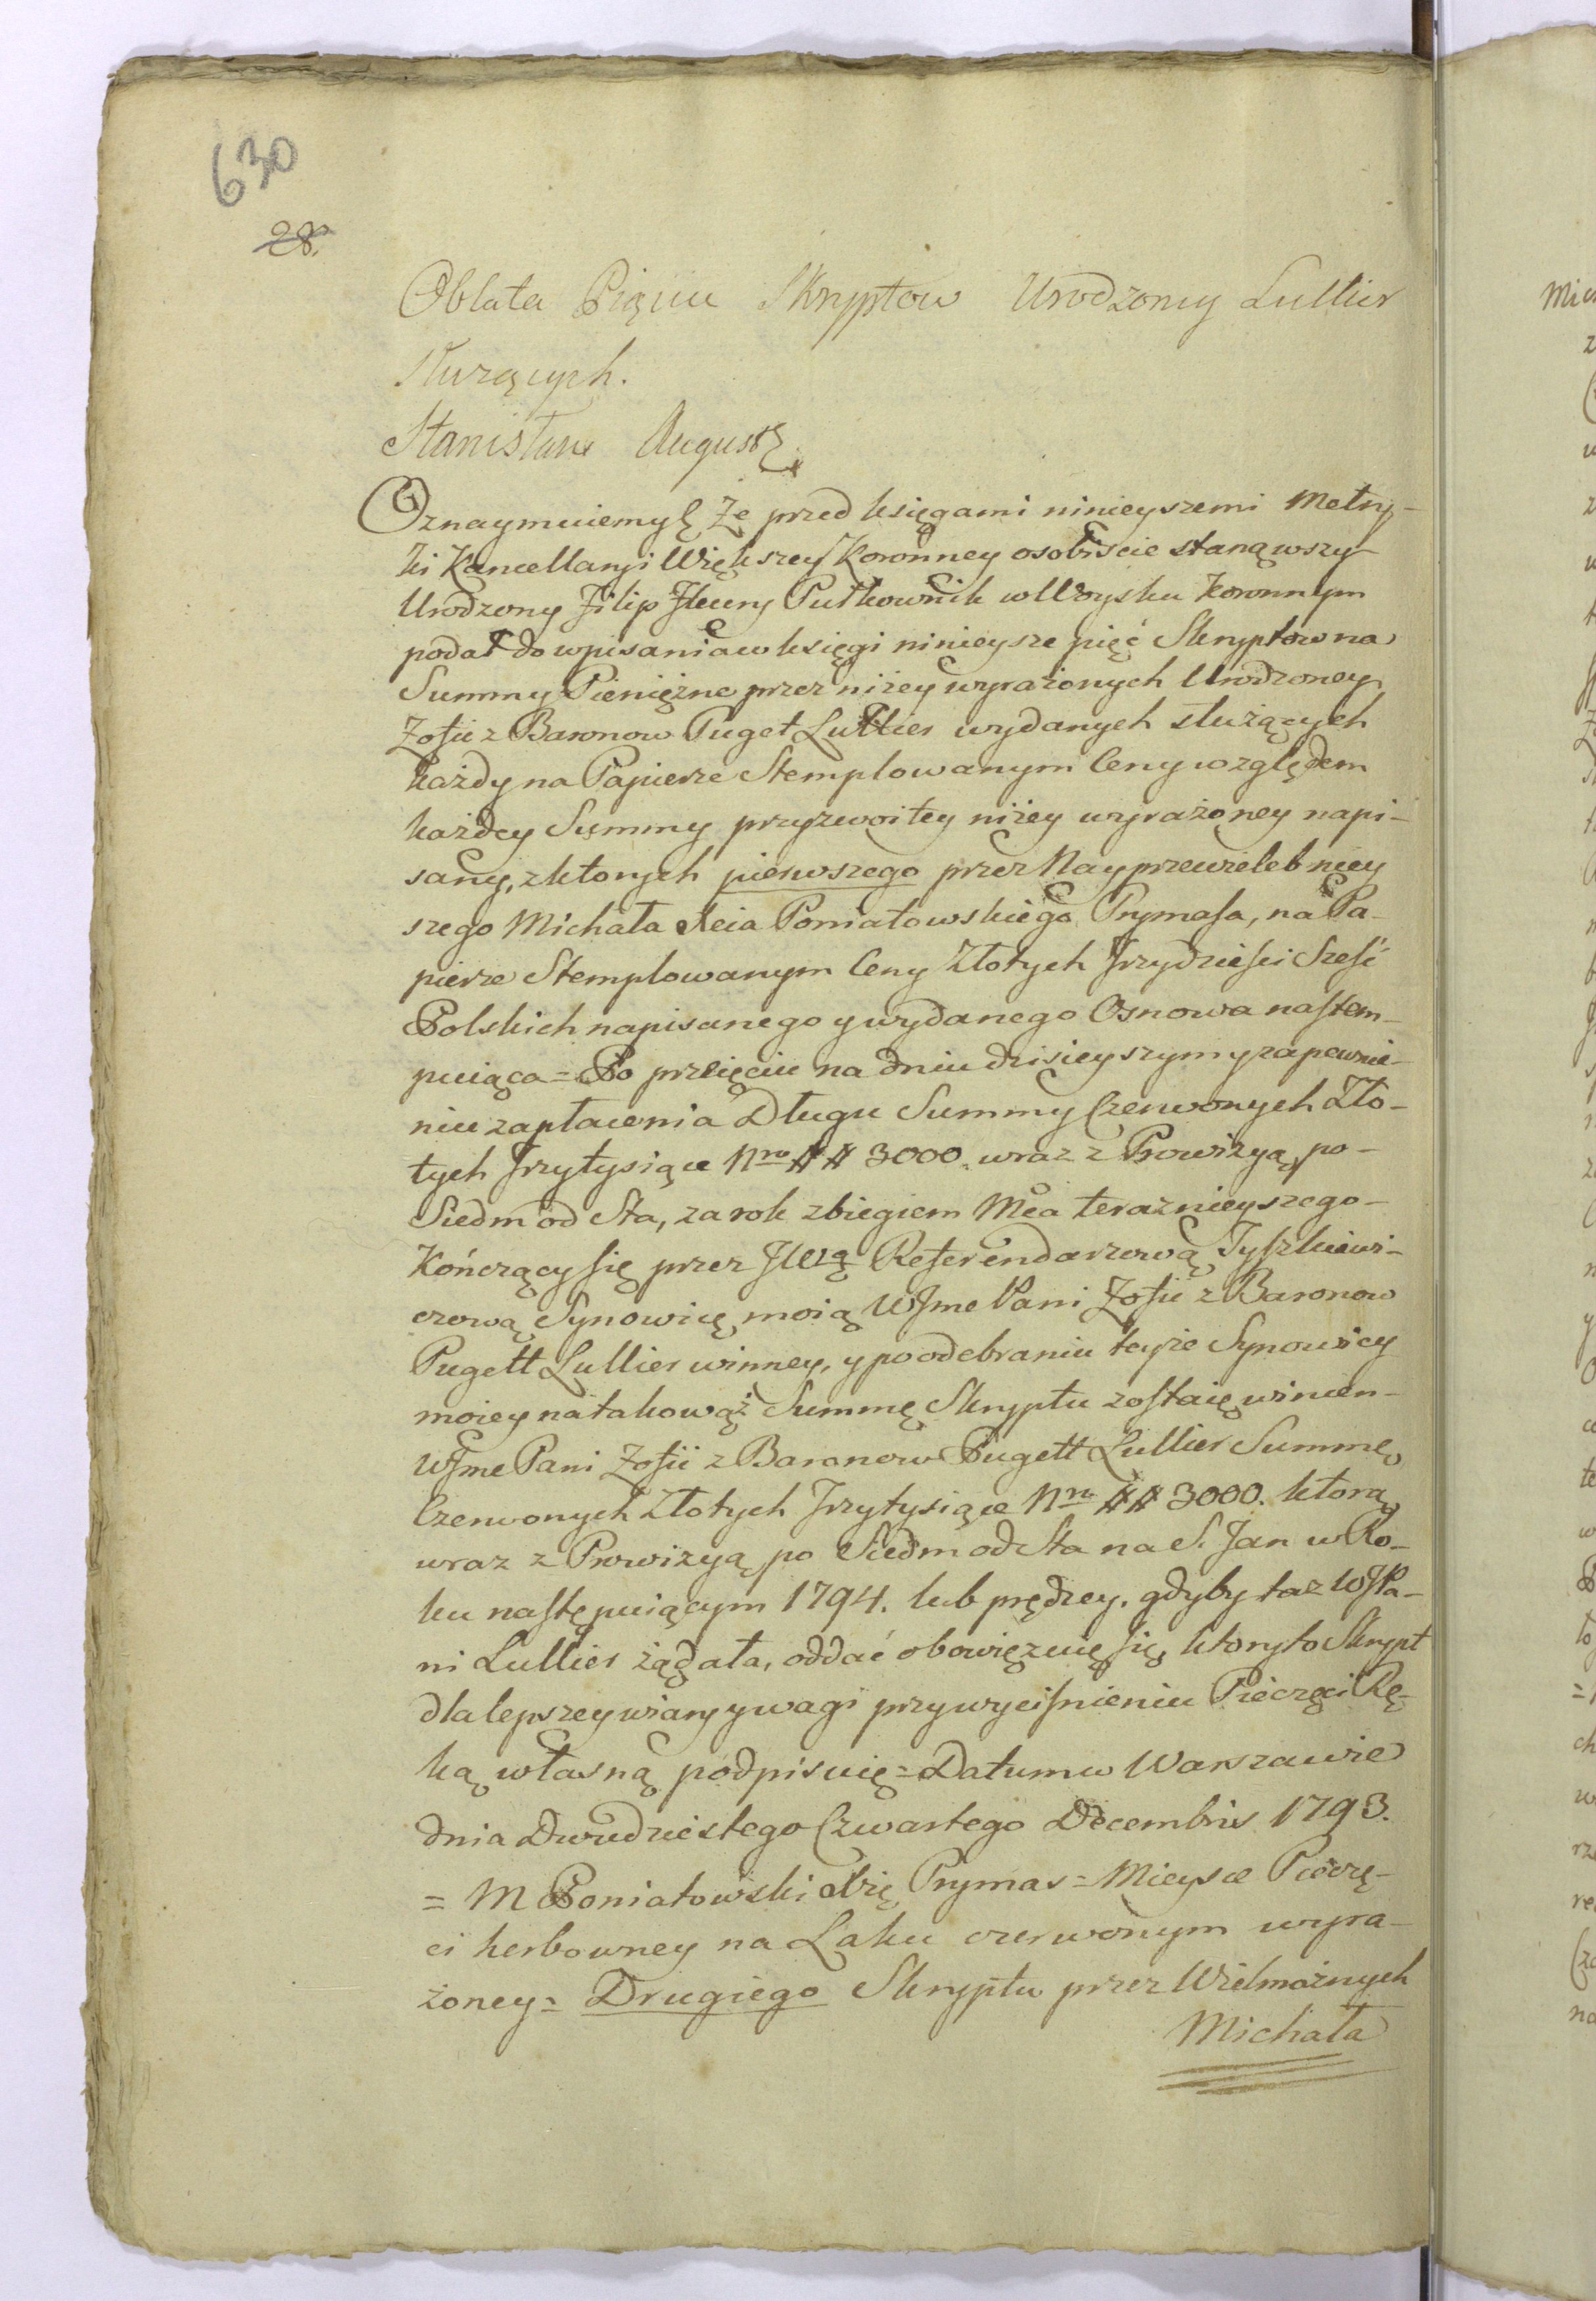 630
28.
Oblata Pięciu Skryptow Urodzoney Lullier
służących.
Stanisław August &
Oznaymuiemy & Że przed księgami ninieyszemi Metry-
ki Kancellaryi Większey Koronney osobiscie stanąwszy
Urodzony Filip Pułkownik w Woysku Koronnym
podał do wpisania w księgi ninieysze pięć Skryptow na
Summy Pieniężne przez niżey wyrażonych Urodzoney
Zofii z Baronow Puget Lullier wydanych służących
każdy na Papierze Stemplowanym Ceny względem
każdey Summy przyzwoitey niżey wyrażoney napi-
sany, z ktorych pierwszego przez Nayprzewielebniey
szego Michała Xcia Poniatowskiego Prymasa, na Pa-
pierze Stemplowanym Ceny Złotych Trzydzieści Sześć
Polskich napisanego y wydanego Osnowa nastem-
puiąca = Po przeięciu na dniu dzisieyszym y zapewnie-
niu zapłacenia Długu Summy Czerwonych Zło-
tych Trzytysiące Nro ## 3000. wraz z Prowizyą po-
Siedm od Sta, za rok z biegiem Mca teraznieyszego-
Kończący się przez JWą Referendarzową Tyszkiewi-
czową Synowicę moią WJmc Pani Zofii z Baronow
Pugett Lullier winney, y po odebraniu teyże Synowicy
moiey na takowąż Summę Skryptu zostaię winien-
WJmc Pani Zofii z Baronow Pugett Lullier Summę
Czerwonych Złotych Trzytysiące Nro ## 3000. ktorą
wraz z Prowizyą po Siedm od Sta na S. Jan w Ro-
ku następuiącym 1794. lub prędzey, gdyby taz WJPa-
ni Lullier żądała, oddać obowięzuię się, ktoryto Skrypt
dla lepszey wiary y wagi przy wyciśnieniu Pieczęci Rę-
ką własną podpisuię = Datum w Warszawie
dnia Dwudziestego Czwartego Decembris 1793.
= M Poniatowski Xżę Prymas = Mieysce Pieczę-
ci herbowney na Laku czerwonym wyra-
żoney = Drugiego Skryptu przez Wielmożnych
Michała